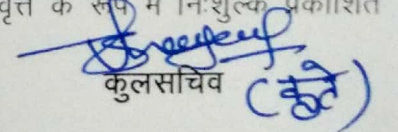 वृत्त के रूप में निःशुल्क प्रकाशित
कुलसचिव (कृते)